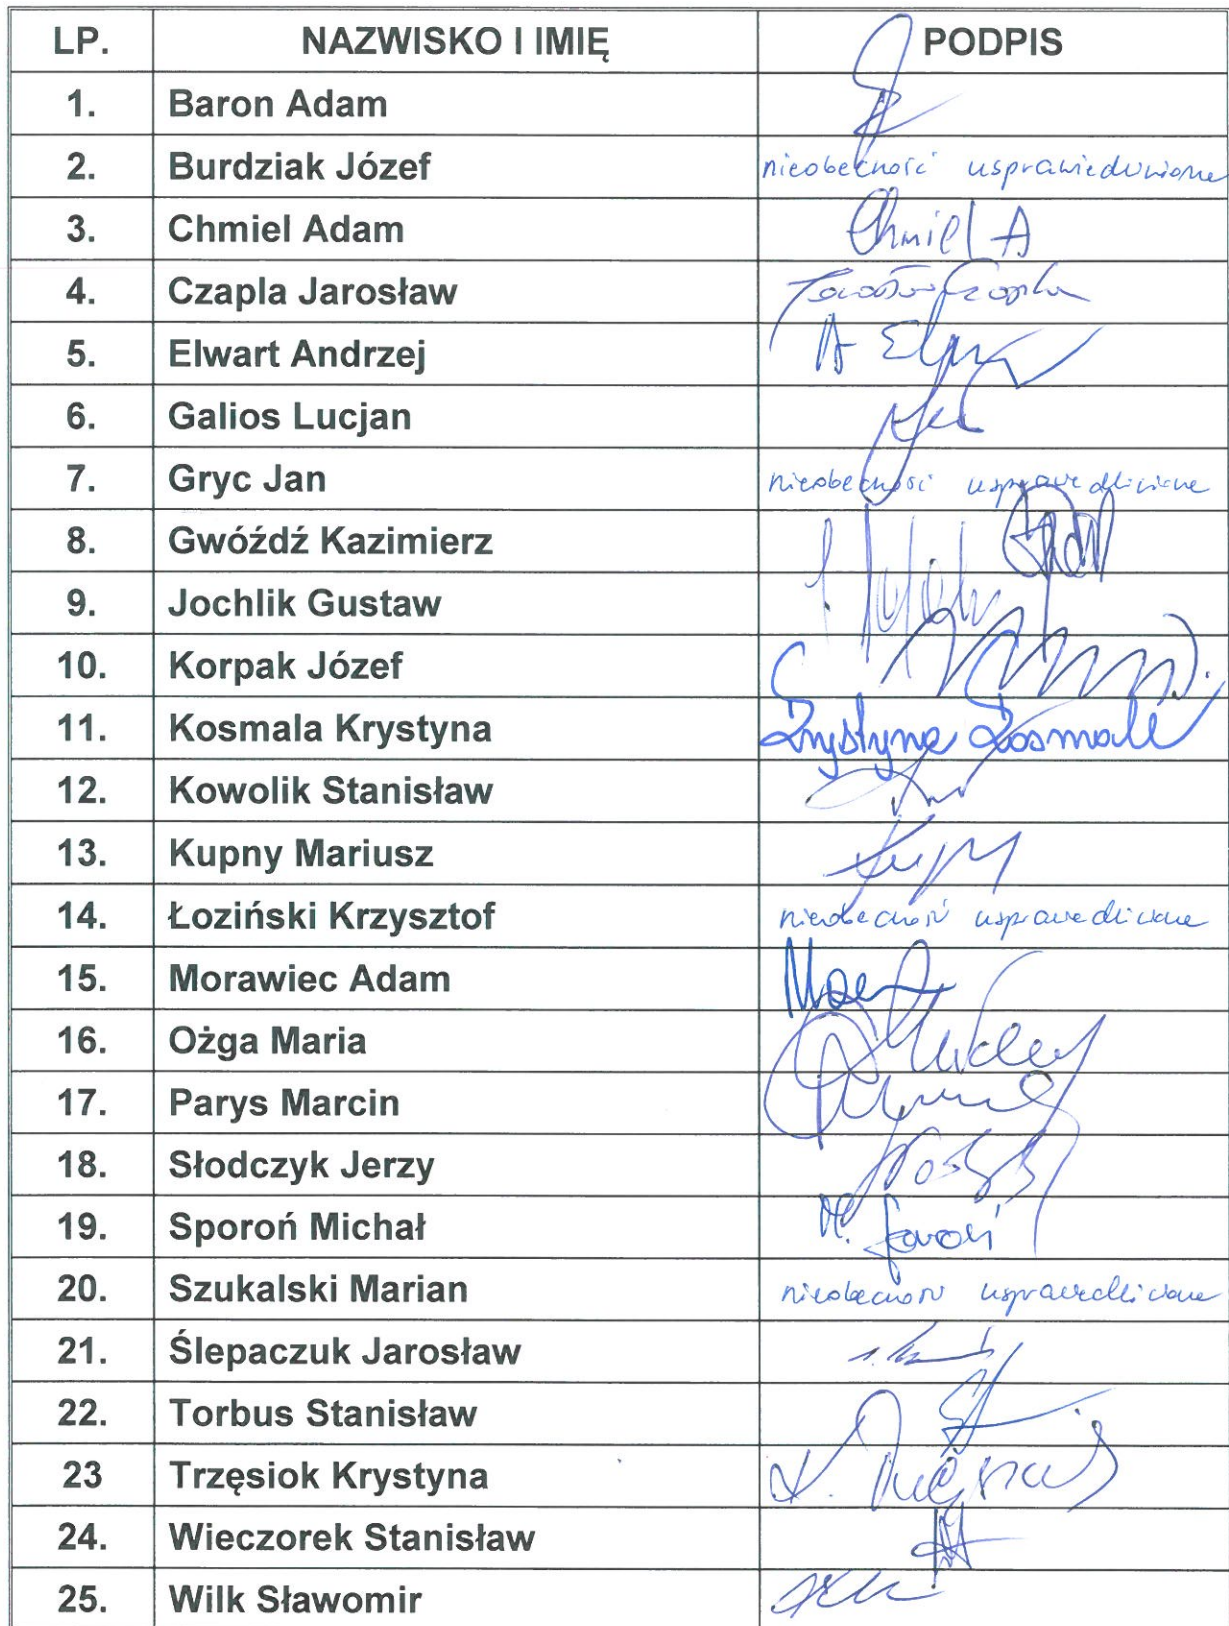 LP. NAZWISKO I IMIĘ PODPIS
1. Baron Adam
2. Burdziak Józef nieobecność usprawiedliwiona
3. Chmiel Adam Chmiel A
4. Czapla Jarosław Jarosław Czapla
5. Elwart Andrzej A
6. Galios Lucjan
7. Gryc Jan nieobecność usprawiedliwiona
8. Gwóźdź Kazimierz
9. Jochlik Gustaw
10. Korpak Józef
11. Kosmala Krystyna Krystyna Kosmala
12. Kowolik Stanisław
13. Kupny Mariusz
14. Łoziński Krzysztof nieobecność usprawiedliwiona
15. Morawiec Adam
16. Ożga Maria
17. Parys Marcin
18. Słodczyk Jerzy
19. Sporoń Michał M.
20. Szukalski Marian nieobecność usprawiedliwiona
21. Ślepaczuk Jarosław
22. Torbus Stanisław
23 Trzęsiok Krystyna K.
24. Wieczorek Stanisław
25. Wilk Sławomir